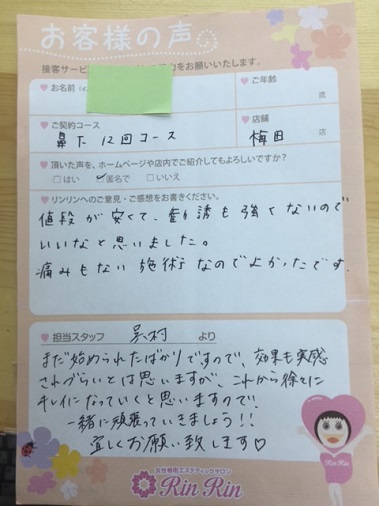 お客様の声
接客サービ
力をお願いいたします。
♥ お名前
♥ ご年齢
歳
♥ ご契約コース
鼻下 12回コース
♥ 店舗
梅田 店
♥ 頂いた声を、ホームページや店内でご紹介してもよろしいですか?
□はい ☑匿名で □いいえ
♥ リンリンへのご意見・ご感想をお書きください。
値段が安くて、勧誘も強くないので
いいなと思いました。
痛みもない施術なのでよかったです.
♥ 担当スタッフ 村 より
まだ始められたばかりですので、効果も実感
されづらいとは思いますが、これから徐々に
キレイになっていくと思いますので
一緒に頑張っていきましょう!!
宜しくお願い致します♡
女性専用エステティックサロン
Rin Rin
Rin Rin